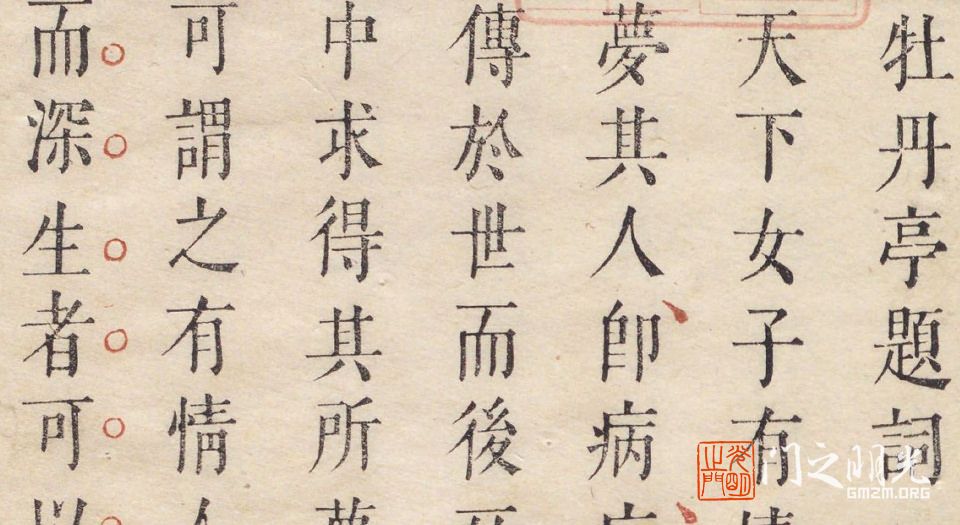 牡丹亭題詞
天下女子有情
夢其人卽病
傳於世而後
中求得其所夢
可謂之有情人
而深生者可以
光明之門
门之明光
GMZM.ORG